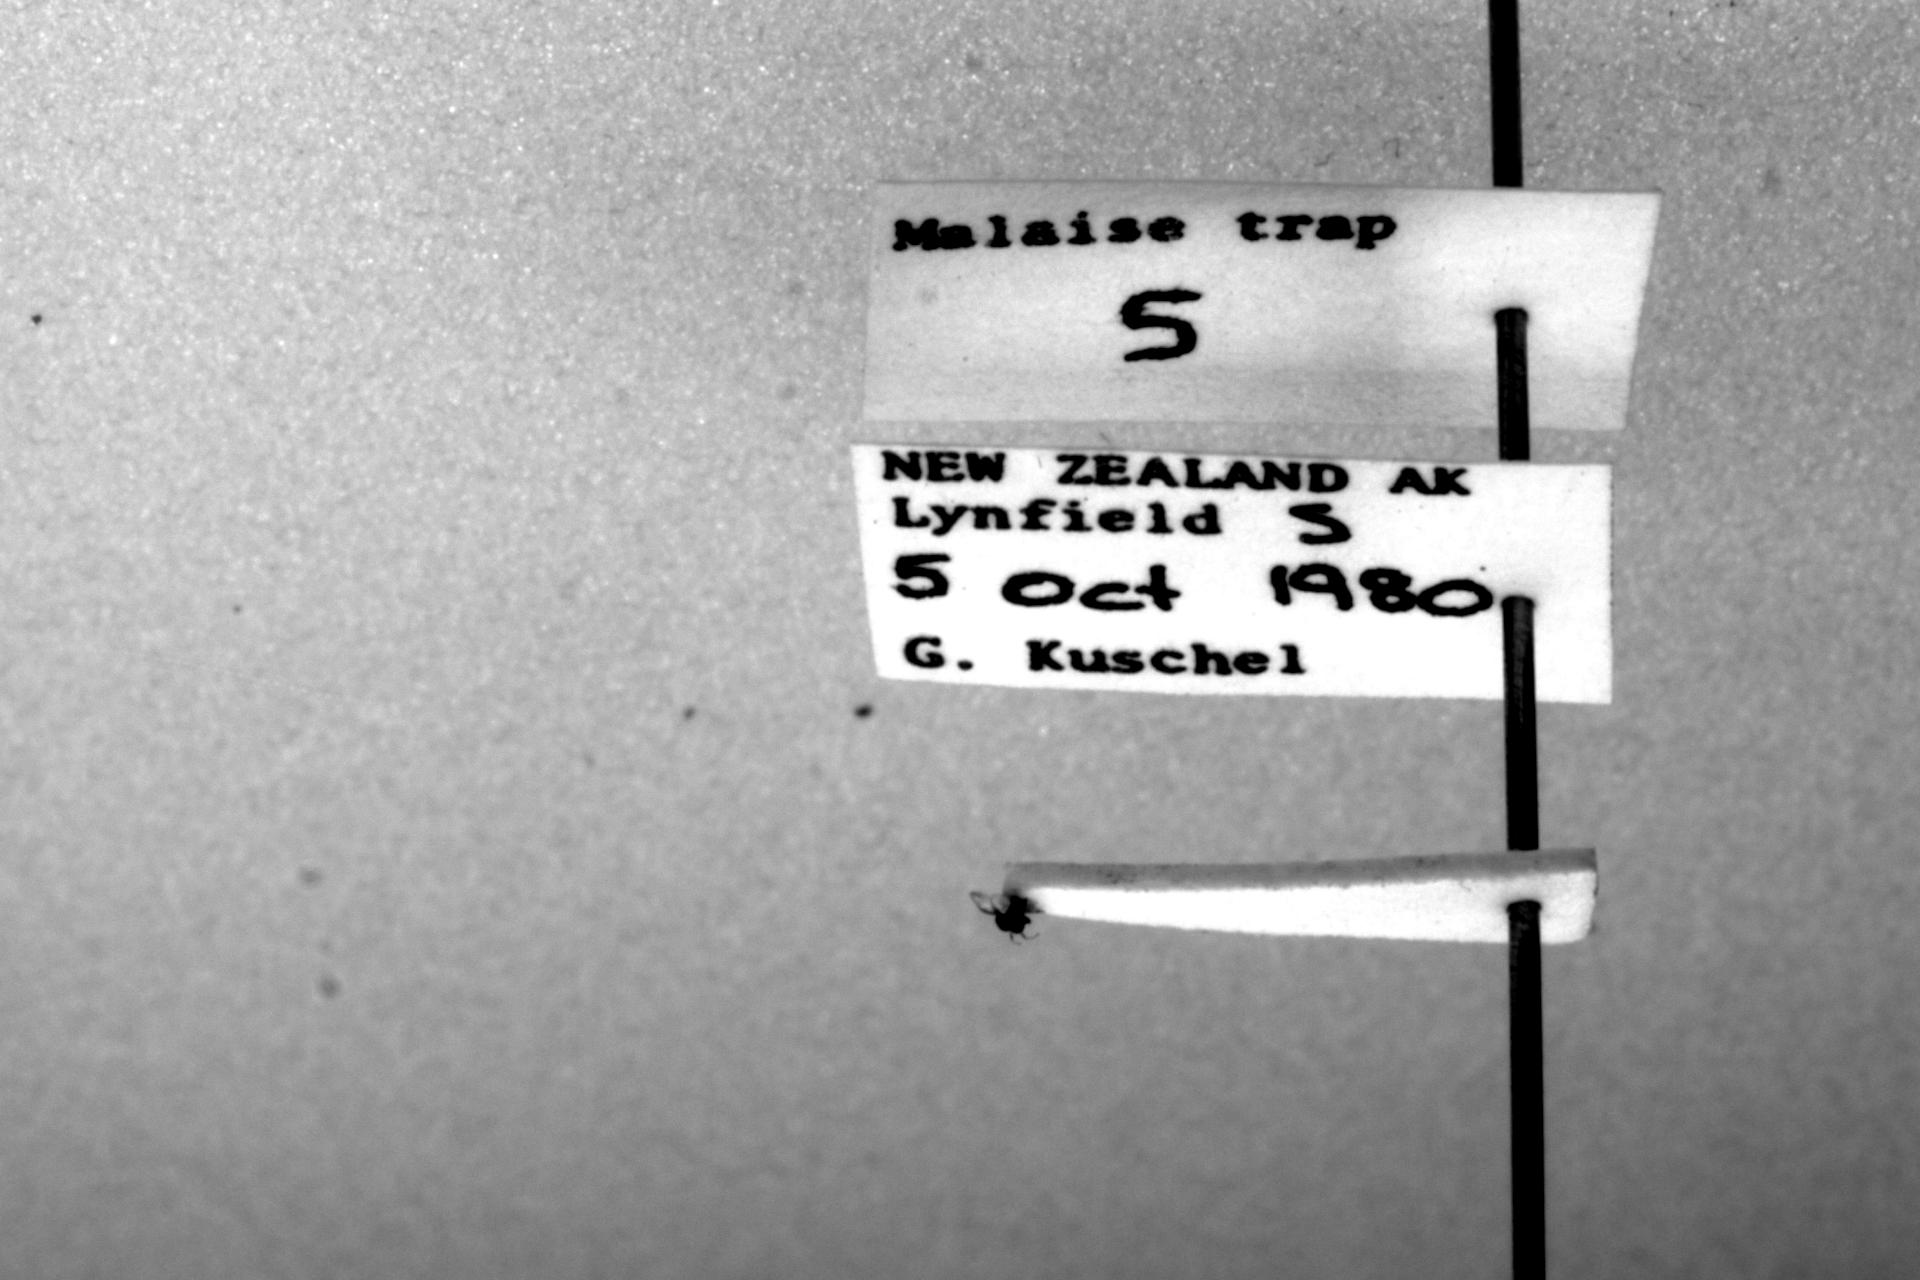 Malaise trap
S
NEW ZEALAND AK
Lynfield S
5 Oct 1980
G. Kuschel